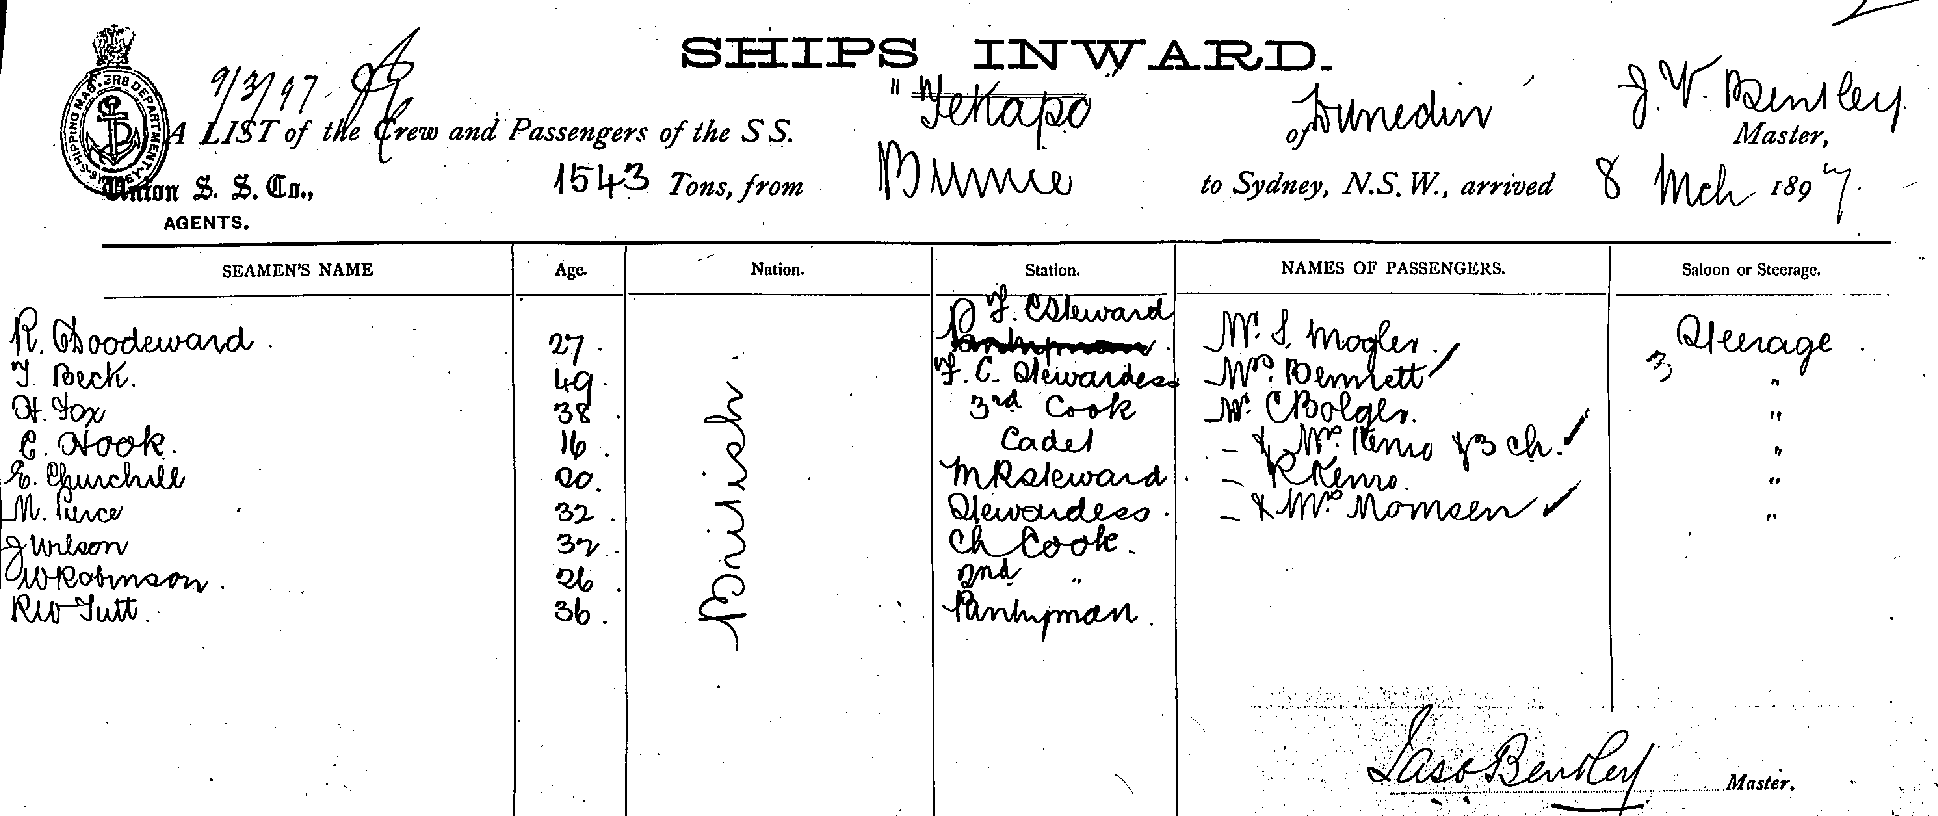 SHIPS INWARD.
9/3/97
A LIST of the Crew and Passengers of the S S. "Tekapo of Dunedin J. V. Bentley Master,
Union S. S. Co., 1543 Tons, from Burnie to Sydney, N.S.W., arrived 8 Mch 1897.
AGENTS.
SEAMEN'S NAME Age. Nation. Station. NAMES OF PASSENGERS. Saloon or Steerage.
R. Goodeward 27 F. C Steward Mr. S. Mogler Steerage
T. Beck. 49 F. C. Stewardess Mrs. Bennett "
H. Fox 38 3rd Cook Mr C Bolger. "
C. Hook. 16 Cadet – & Mrs. Kenro & 3 ch. "
E. Churchill 20. M R Steward – R Kenro. "
M. Pierce 32 Stewardess. – & Mrs. Momsen "
J Wilson 32 Ch Cook.
W Robinson. 26 2nd "
R W Tutt. 36. Pantryman.
British
Jas V Bentley Master.